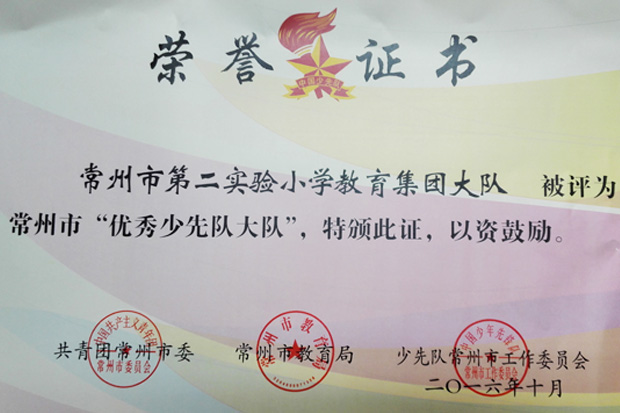 荣誉证书
中国少先队
常州市第二实验小学教育集团大队 被评为
常州市“优秀少先队大队”，特颁此证，以资鼓励。
共青团常州市委 常州市教育局 少先队常州市工作委员会
中国共产主义青年团
常州市委员会
常州市教育局
中国少年先锋队
常州市工作委员会
二〇一六年十月